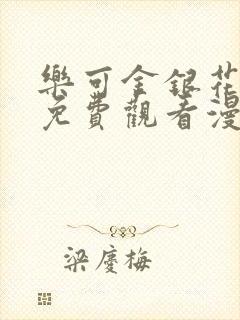 樂可金銀花
免費觀看漫
梁慶梅